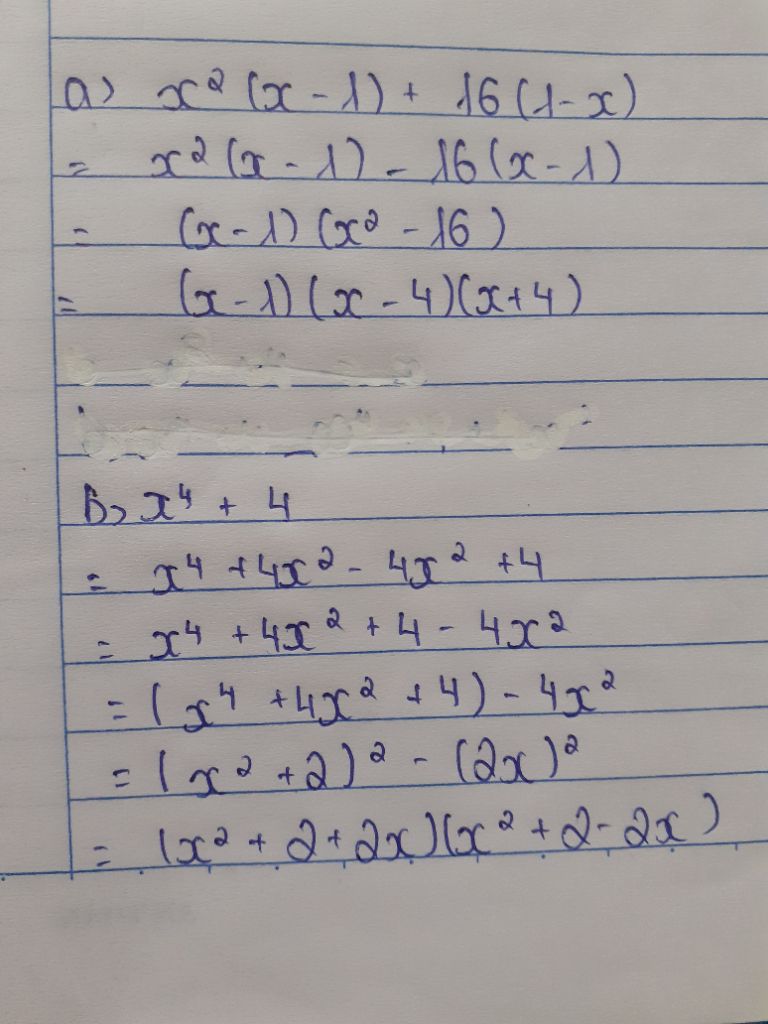 a) x² (x - 1) + 16 (1 - x)
= x² (x - 1) - 16 (x - 1)
= (x - 1) (x² - 16)
= (x - 1) (x - 4)(x + 4)
b) x⁴ + 4
= x⁴ + 4x² - 4x² + 4
= x⁴ + 4x² + 4 - 4x²
= (x⁴ + 4x² + 4) - 4x²
= (x² + 2)² - (2x)²
= (x² + 2 + 2x)(x² + 2 - 2x)